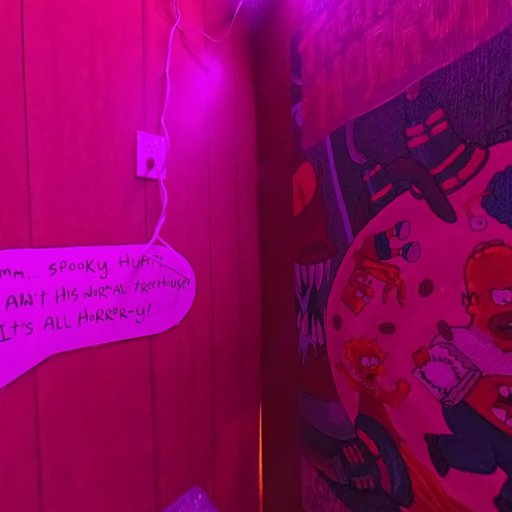 mm... SPOOKY HUH?!
AIN'T HIS NORMAL TREEHOUSE?
It's ALL HORROR-y!
TREEHOUSE
HORROR